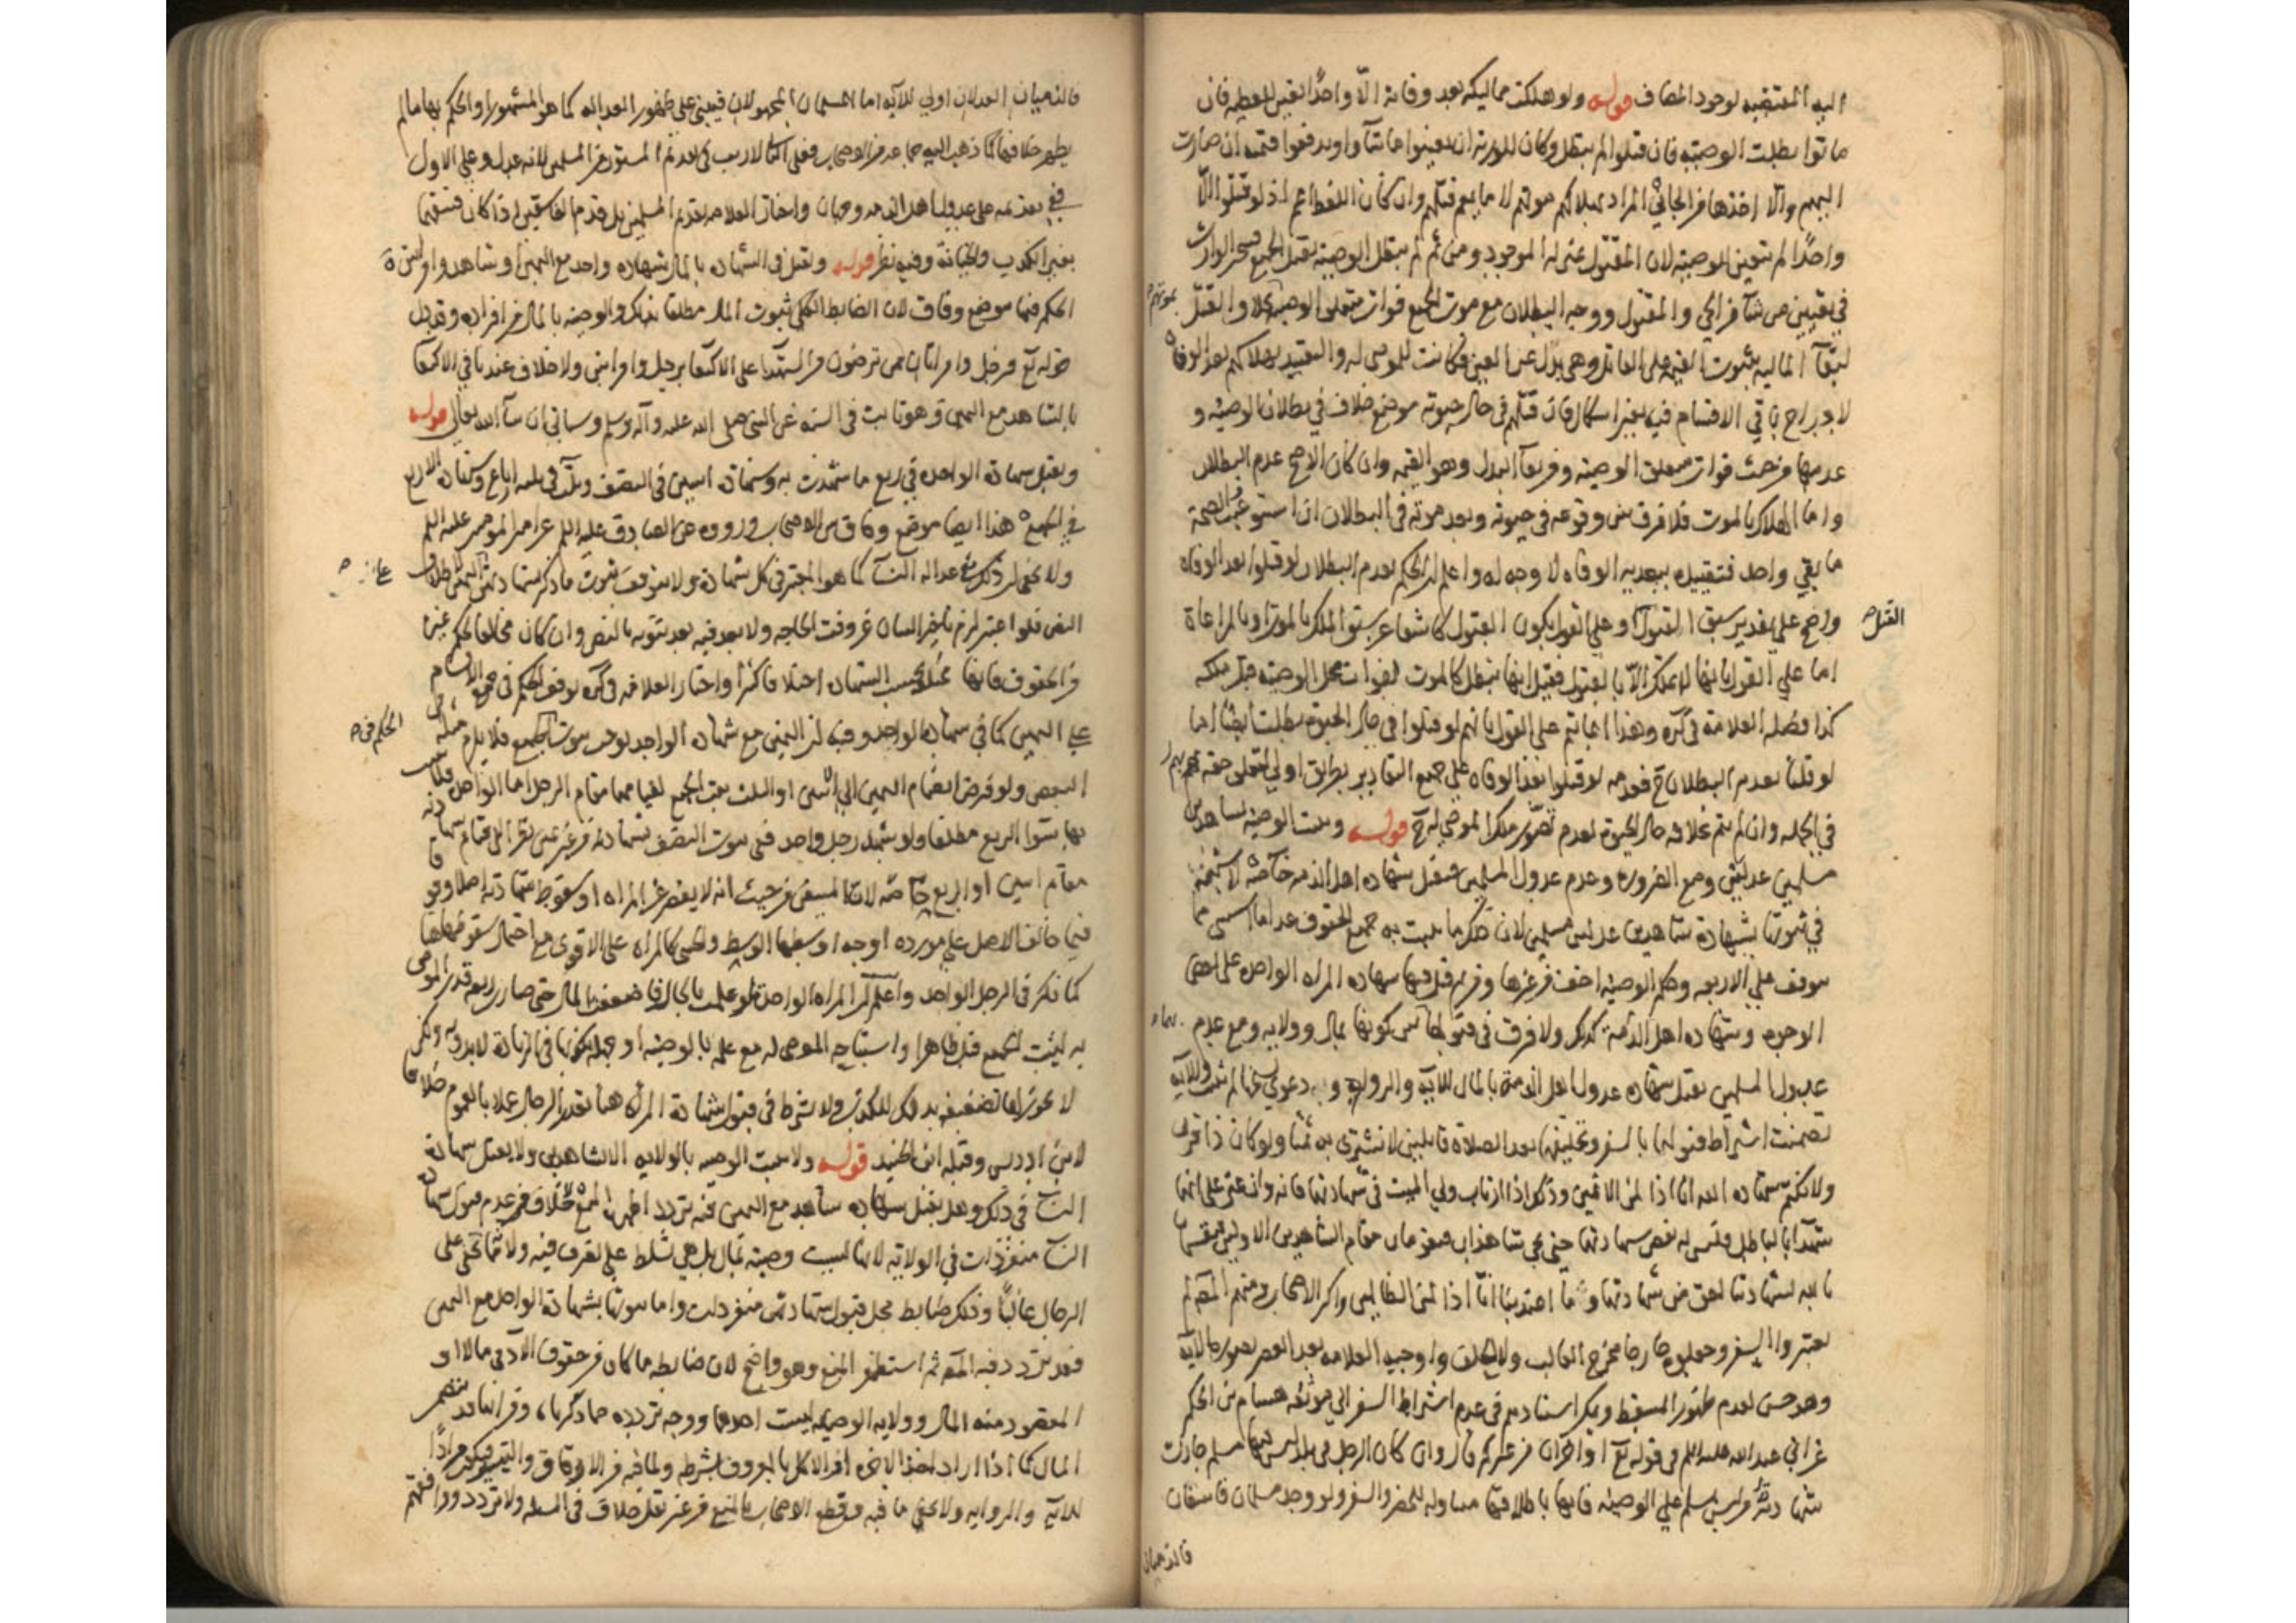 اليه المقتضيه لوجود المضاف قوله ولو هلكت مماليكه بعد وفاته الا واحدا تعين للعطيه فان
ماتوا بطلت الوصيه فان قتلوا لم تبطل وكان للورثة ان يعينوا من شآوا ويدفعوا قيمته ان صارت
اليهم والا اخذها من الجاني المراد بهلاكهم موتهم لا ما يعم قتلهم وان كان اللفظ اعم اذ لو قتلوا الا
واحدا لم يتعين للوصيه لان المقتول بمنزله الموجود ومن ثم لم تبطل الوصيه بقتل الجميع فيتخير الوارث
في تعيين من شآ من الحي والمقتول ووجه البطلان مع موت الجميع فوات متعلق الوصيه بخلاف القتل
بموتهم
لبقآ الماليه بثبوت القيمه على القاتل وهي بدل عن العين فكانت للموصى له والتقييد بهلاكهم بعد الوفاه
لاخراج باقي الاقسام فيه بغير اشكال فان قتلهم في حال حيوته موضع خلاف في بطلان الوصيه و
عدمها من حيث فوات متعلق الوصيه ومن بقآ البدل وهو القيمه وان كان الاصح عدم البطلان
واما الهلاك بالموت فلا فرق بين وقوعه في حيوته وبعد موته في البطلان ان استوعب والصحة
ما بقي واحد فتقييده ببعديه الوفاه لا وجه له واعلم ان الحكم بعدم البطلان لو قتلوا بعد الوفاه
واضح على تقدير سبق القبول او على القول بكون القبول كاشفا عن سبق الملك بالموت او بالمراعاة
القتل
اما على القول بانها لا تملك الا بالقبول فقيل انها تبطل كالموت لفوات محل الوصيه قبل ملكه
كذا فصله العلامة في كره وهذا انما يتم على القول بانهم لو قتلوا في حال الحيوة بطلت ايضا اما
لو قلنا بعدم البطلان ح فعدمه لو قتلوا بعد الوفاه على جميع التقادير بطريق اولى لتعلق حقه بهم
في الجمله وان لم يتم بخلافه حال الحيوة لعدم تصور ملك الموصى له ح قوله وتثبت الوصيه بشاهدين
مسلمين عدلين ومع الضروره وعدم عدول المسلمين تقبل شهاده اهل الذمه خاصه لا شبهة
في ثبوتها بشهادة شاهدين عدلين مسلمين لان ذلك مما يثبت به جميع الحقوق عدا ما استثني مما
يتوقف على الاربعه وحكم الوصيه اخف من غيرها ومن ثم قبل فيها شهاده المراه الواحده على بعض
الوجوه وشهاده اهل الذمة كذلك ولا فرق في قبولهما بين كونها بمال وولايه ومع عدم
عدول المسلمين تقبل شهاده عدول اهل الذمة بالمال للآيه والروايه
تضمنت اشتراط قبولها بالسفر وتحليفهما بعد الصلاة قايلين لا نشتري به ثمنا ولو كان ذا قربى
ولا نكتم شهاده الله انا اذا لمن الاثمين وذلك اذا ارتاب ولي الميت في شهادتهما فانه وان عثر على انهما
شهدا بالباطل فليس له نقض شهادتهما حتى يجي شاهدان فيقومان مقام الشاهدين الاولين فيقسمان
بالله لشهادتنا احق من شهادتهما وما اعتدينا انا اذا لمن الظالمين واكثر الاصحاب ومنهم المص لم
يعتبروا السفر وجعلوه خارجا مخرج الغالب ولا الحلف واوجبه العلامه بعد العصر بصوره الآيه
وهو حسن لعدم ظهور المسقط ويمكن استنادهم في عدم اشتراط السفر الى موثقه هشام بن الحكم
عن ابي عبد الله عليه السلم في قوله تع او اخران من غيركم قال وان كان الرجل في بلد ليس فيها مسلم جازت
شهادة من ليس بمسلم على الوصيه فانها باطلاقها متناوله للحضر والسفر ولو وجد مسلمان فاسقان
فالذميان
فالذميان العدلان اولى للآيه اما المسلمان المجهولان فيبنى على ظهور العداله كما هو المشهور او الحكم بها ما لم
يظهر خلافها كما ذهب اليه جماعه من الاصحاب فعلى الثاني لا ريب في تقديم المستور من المسلمين لانه عدل وعلى الاول
في تقديمه على عدول اهل الذمه وجهان واختار العلامه تقديم المسلمين بل قدم الفاسقين اذا كان فسقهما
بغير الكذب والخيانة وفيه نظر قوله وتقبل في الشهاده بالمال شهاده واحد مع اليمين او شاهد وامراتين
الحكم فيها موضع وفاق لان الضابط الكلي ثبوت المال مطلقا بذلك والوصيه بالمال من افراده وقد دل
قوله تع فرجل وامراتان ممن ترضون من الشهدا على الاكتفا برجل وامراتين ولا خلاف عندنا في الاكتفا
بالشاهد مع اليمين وهو ثابت في السنه عن النبي صلى الله عليه وآله وسلم وسياتي ان شآ الله تعالى قوله
وتقبل شهادة الواحده في ربع ما شهدت به وشهادة اثنتين في النصف وثلث في ثلثه ارباع وشهادة الاربع
في الجميع هذا ايضا موضع وفاق من الاصحاب ورووه عن الصادق عليه السلم عن امير المومنين عليه السلم
ولا يخفى ان ذلك مع عداله النسآ كما هو المعتبر في كل شهادة ولا يتوقف ثبوت ما ذكر بشهادتهن على اليمين لاطلاق
النص فلو اعتبر لزم تاخير البيان عن وقت الحاجه ولا بعد فيه بعد ثبوته بالنص وان كان مخالفا لحكم غيرها
من الحقوق فانها تختلف بحسب الشهاده اختلافا كثيرا واختار العلامه في كره توقف الحكم في جميع الاقسام
على اليمين كما في شهاده الواحد وفيه ان اليمين مع شهاده الواحد توجب ثبوت الجميع فلا يلزم مثله في
الحكم في
البعض ولو فرض انضمام اليمين الى اثنتين او الثلث ثبت الجميع لقيامهما مقام الرجل اما الواحده فلا يثبت
بها سوى الربع مطلقا ولو شهد رجل واحد ففي ثبوت النصف بشهادته من غير يمين نظرا الى قيام شهادته
مقام اثنتين او الربع خاصه لانه المتيقن من حيث انه لا يقصر عن المراه او سقوط شهادته اصلا وقوفا
فيما خالف الاصل على مورده اوجه اوسطها الوسط والخنثى كالمراه على الاقوى مع احتمال سقوطها
كما ذكر في الرجل الواحد واعلم ان المراه الواحدة لو علمت بالحال فاضعفت المال حتى صار ربعه قدر الموصى
به ليثبت الجميع قبل ظاهرا واستباحه الموصى له مع علمه بالوصيه او جهله بكونها في الزيادة لا بدونه ولكن
لا يجوز لها تضعيفه بذلك للكذب ولا يشترط في قبول شهادة المراه هنا تعذر الرجال عملا بالعموم خلافا
لابن ادريس وقبله ابن الجنيد قوله ولا تثبت الوصيه بالولايه الا بشاهدين ولا تقبل شهادة
النسآ في ذلك وهل تقبل شهاده شاهد مع اليمين فيه تردد اظهره المنع لا خلاف في عدم قبول شهادة
النسآ منفردات في الولايه لانها ليست وصيه بمال بل هي تسلط على تصرف فيه ولا مما تخفى على
الرجال غالبا وذلك ضابط محل قبول شهادتهن منفردات واما ثبوتها بشهادة الواحد مع اليمين
فقد تردد فيه المص ثم استظهر المنع وهو واضح لان ضابطه ما كان من حقوق الآدمي مالا او
المقصود منه المال وولايه الوصيه ليست احدهما ووجه تردده مما ذكرناه ومن انها قد تتضمن
المال كما اذا اراد اخذ الاجره او الاكل بالمعروف بشرطه ولما فيه من الارفاق والتيسير فيكون مرادا
للآية والروايه ولا يخفى ما فيه وقطع الاصحاب بالمنع من غير نقل خلاف في المسئله ولا تردد ووافقهم